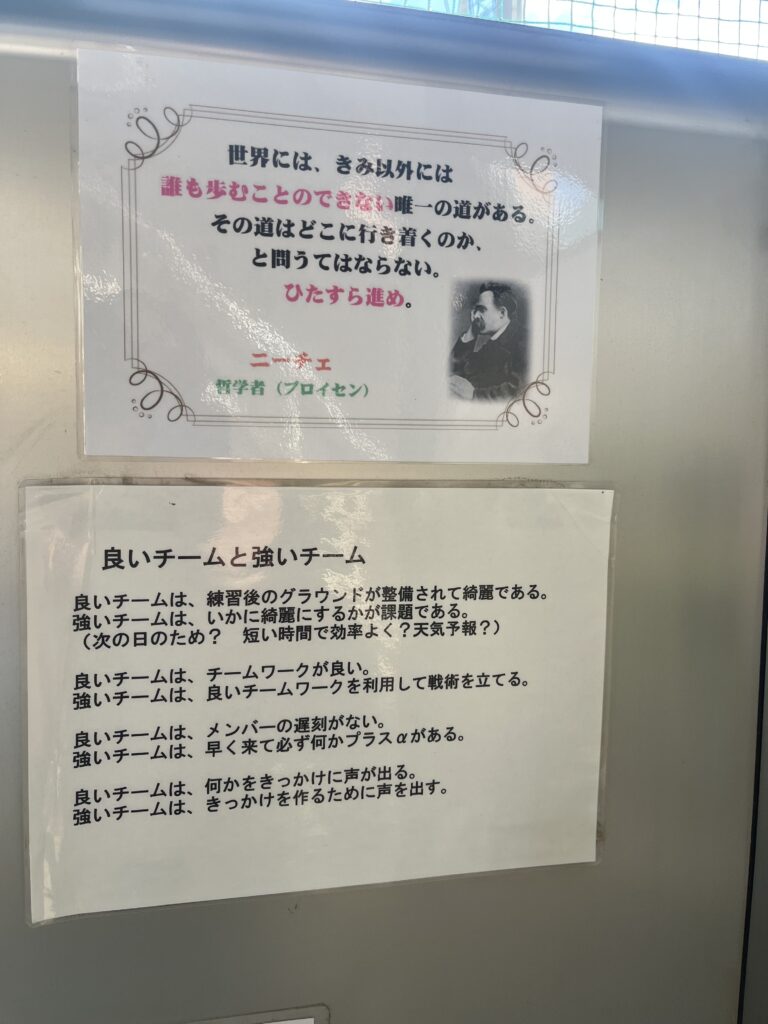 世界には、きみ以外には
誰も歩むことのできない唯一の道がある。
その道はどこに行き着くのか、
と問うてはならない。
ひたすら進め。
ニーチェ
哲学者（プロイセン）
良いチームと強いチーム
良いチームは、練習後のグラウンドが整備されて綺麗である。
強いチームは、いかに綺麗にするかが課題である。
（次の日のため？　短い時間で効率よく？天気予報？）
良いチームは、チームワークが良い。
強いチームは、良いチームワークを利用して戦術を立てる。
良いチームは、メンバーの遅刻がない。
強いチームは、早く来て必ず何かプラスαがある。
良いチームは、何かをきっかけに声が出る。
強いチームは、きっかけを作るために声を出す。